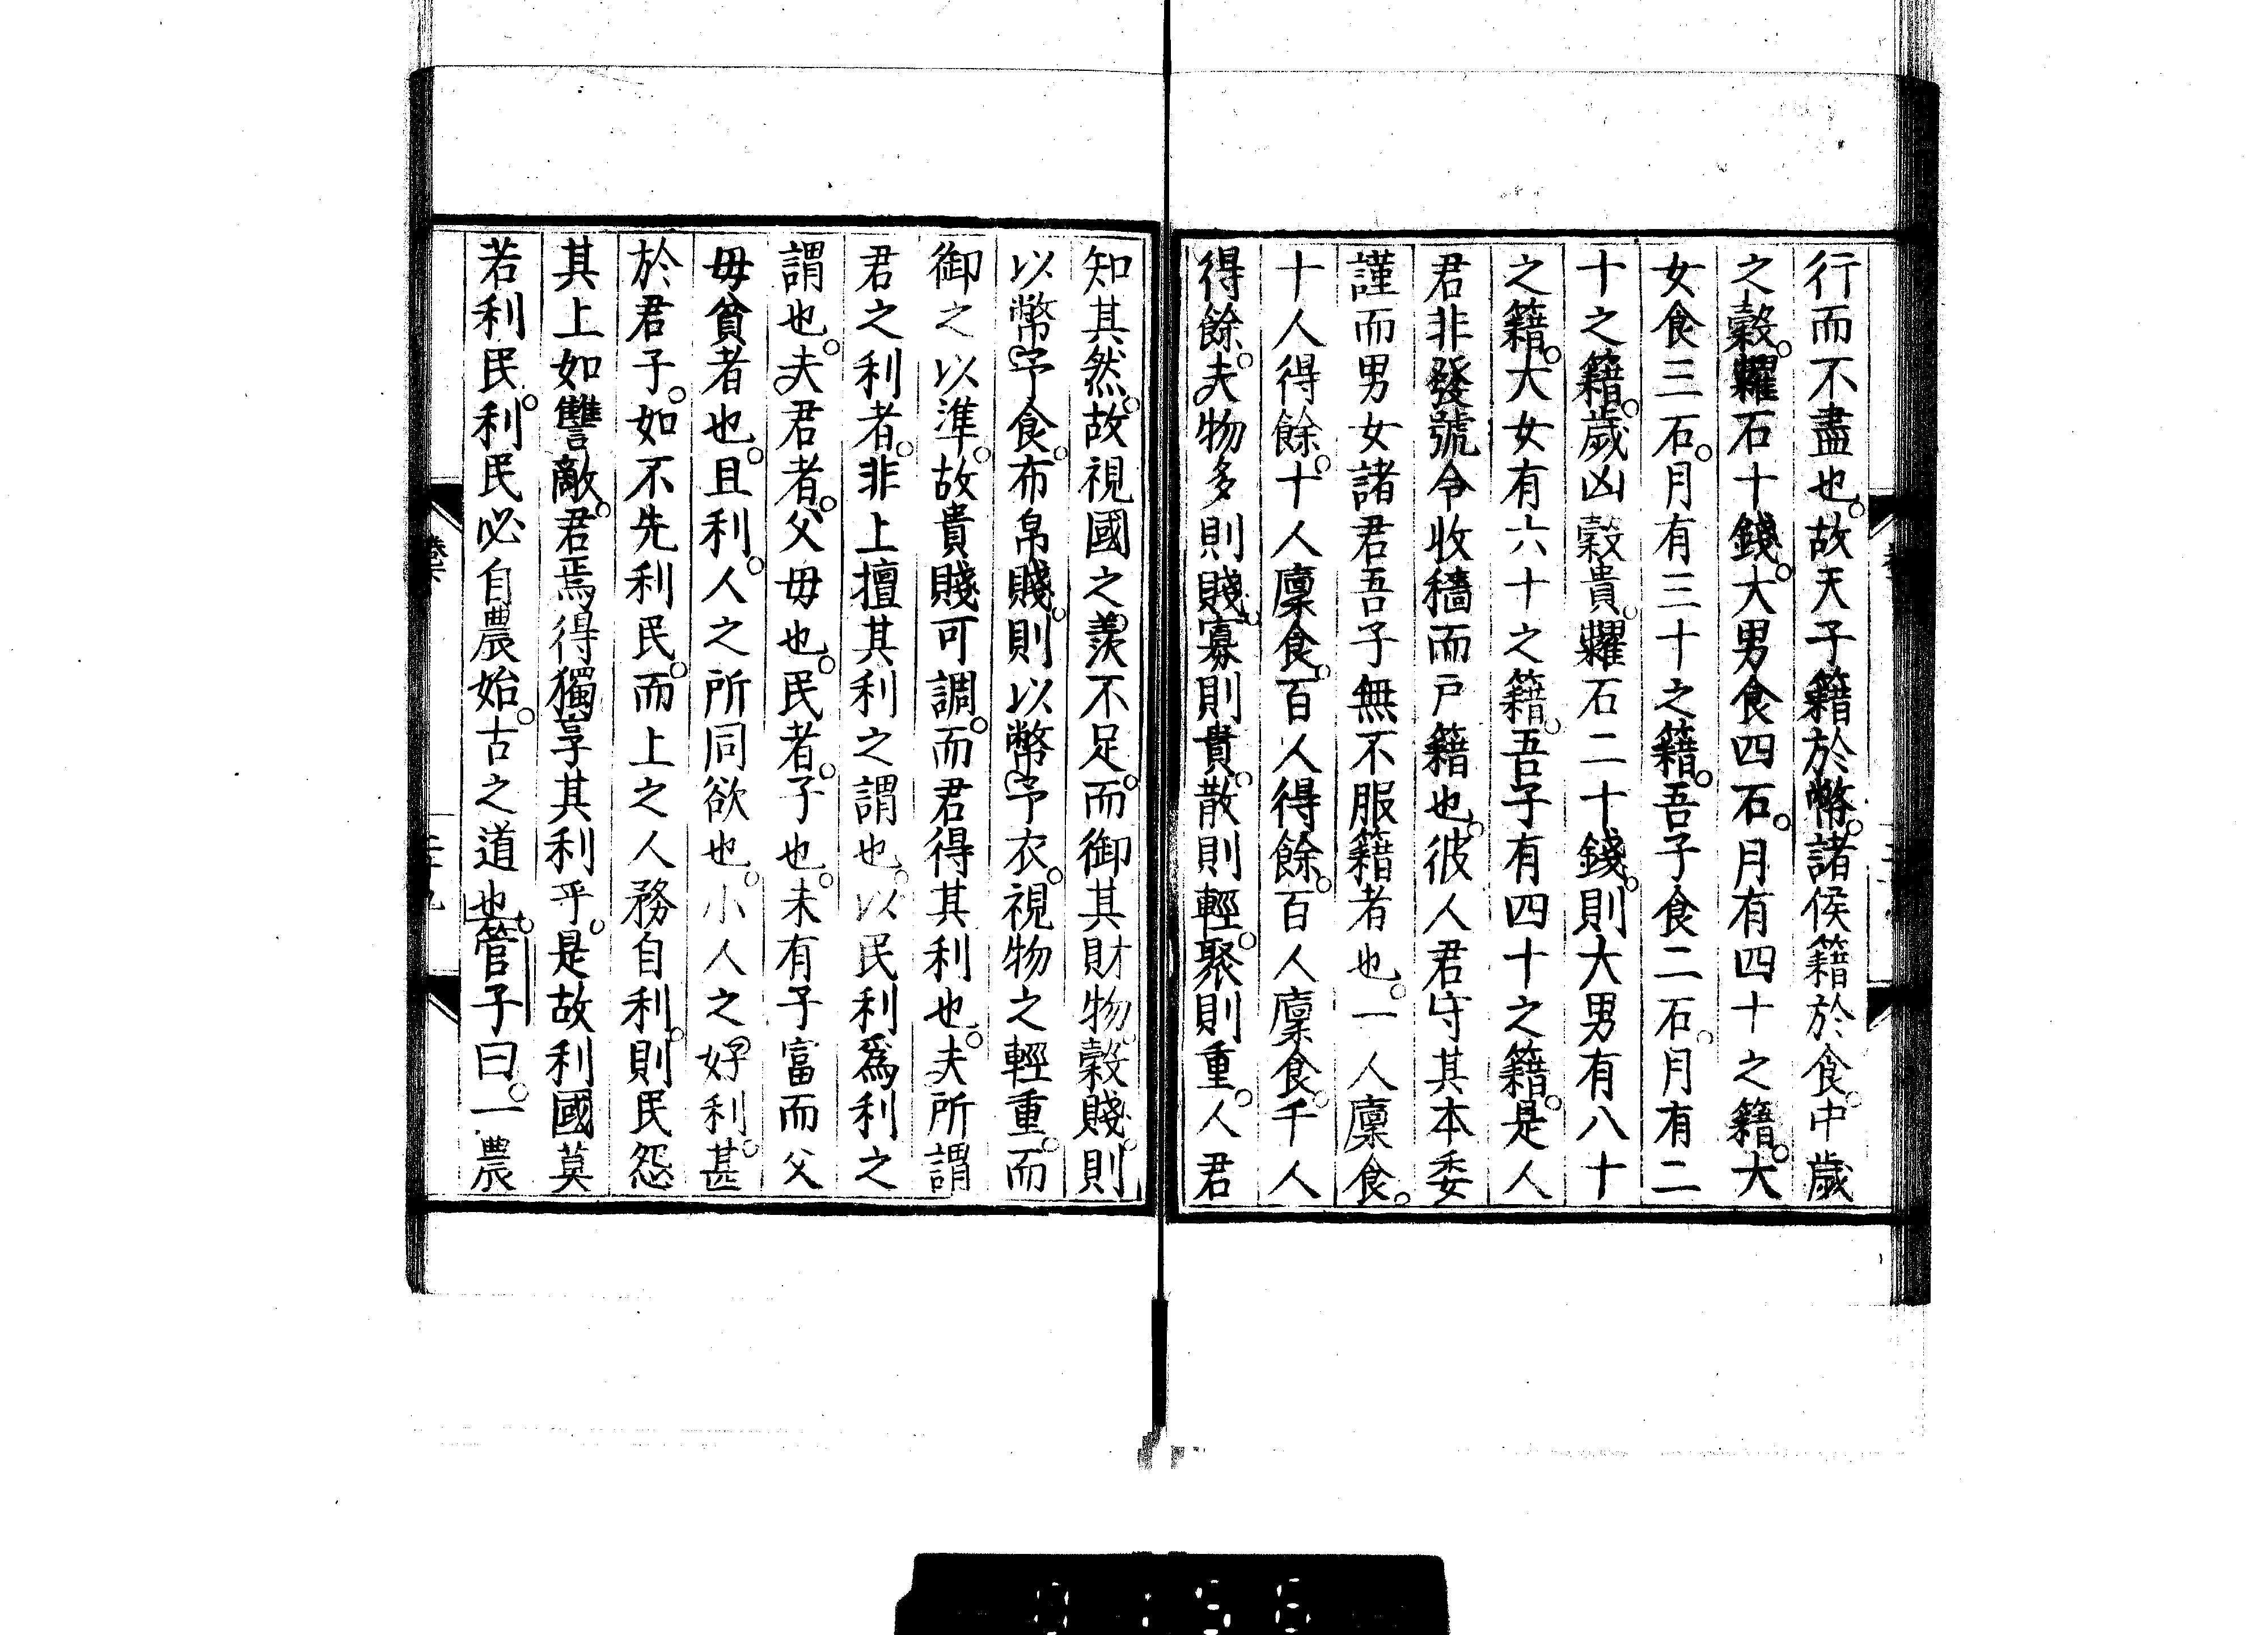 行而不盡也。故天子籍於幣。諸侯籍於食。中歲
之穀。糶石十錢。大男食四石。月有四十之籍。大
女食三石。月有三十之籍。吾子食二石。月有二
十之籍。歲凶穀貴。糶石二十錢。則大男有八十
之籍。大女有六十之籍。吾子有四十之籍。是人
君非發號令收穡而戶籍也。彼人君守其本委
謹而男女諸君吾子無不服籍者也。一人廩食。
十人得餘。十人廩食。百人得餘。百人廩食。千人
得餘。夫物多則賤。寡則貴。散則輕。聚則重。人君
知其然。故視國之羨不足。而御其財物。穀賤。則
以幣予食。布帛賤。則以幣予衣。視物之輕重。而
御之以準。故貴賤可調。而君得其利也。夫所謂
君之利者。非上擅其利之謂也。以民利爲利之
謂也。夫君者。父毋也。民者。子也。未有子富而父
毋貧者也。且利。人之所同欲也。小人之好利。甚
於君子。如不先利民。而上之人務自利。則民怨
其上如讐敵。君焉得獨享其利乎。是故利國莫
若利民。利民必自農始。古之道也。管子曰。一農